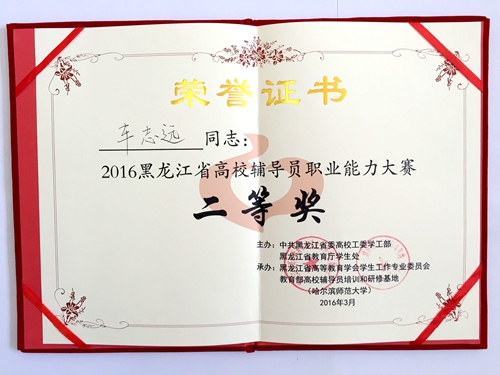 荣誉证书
车志远 同志：
2016黑龙江省高校辅导员职业能力大赛
二等奖
主办：中共黑龙江省委高校工委学工部
黑龙江省教育厅学生处
承办：黑龙江省高等教育学会学生工作专业委员会
教育部高校辅导员培训和研修基地
（哈尔滨师范大学）
2016年3月